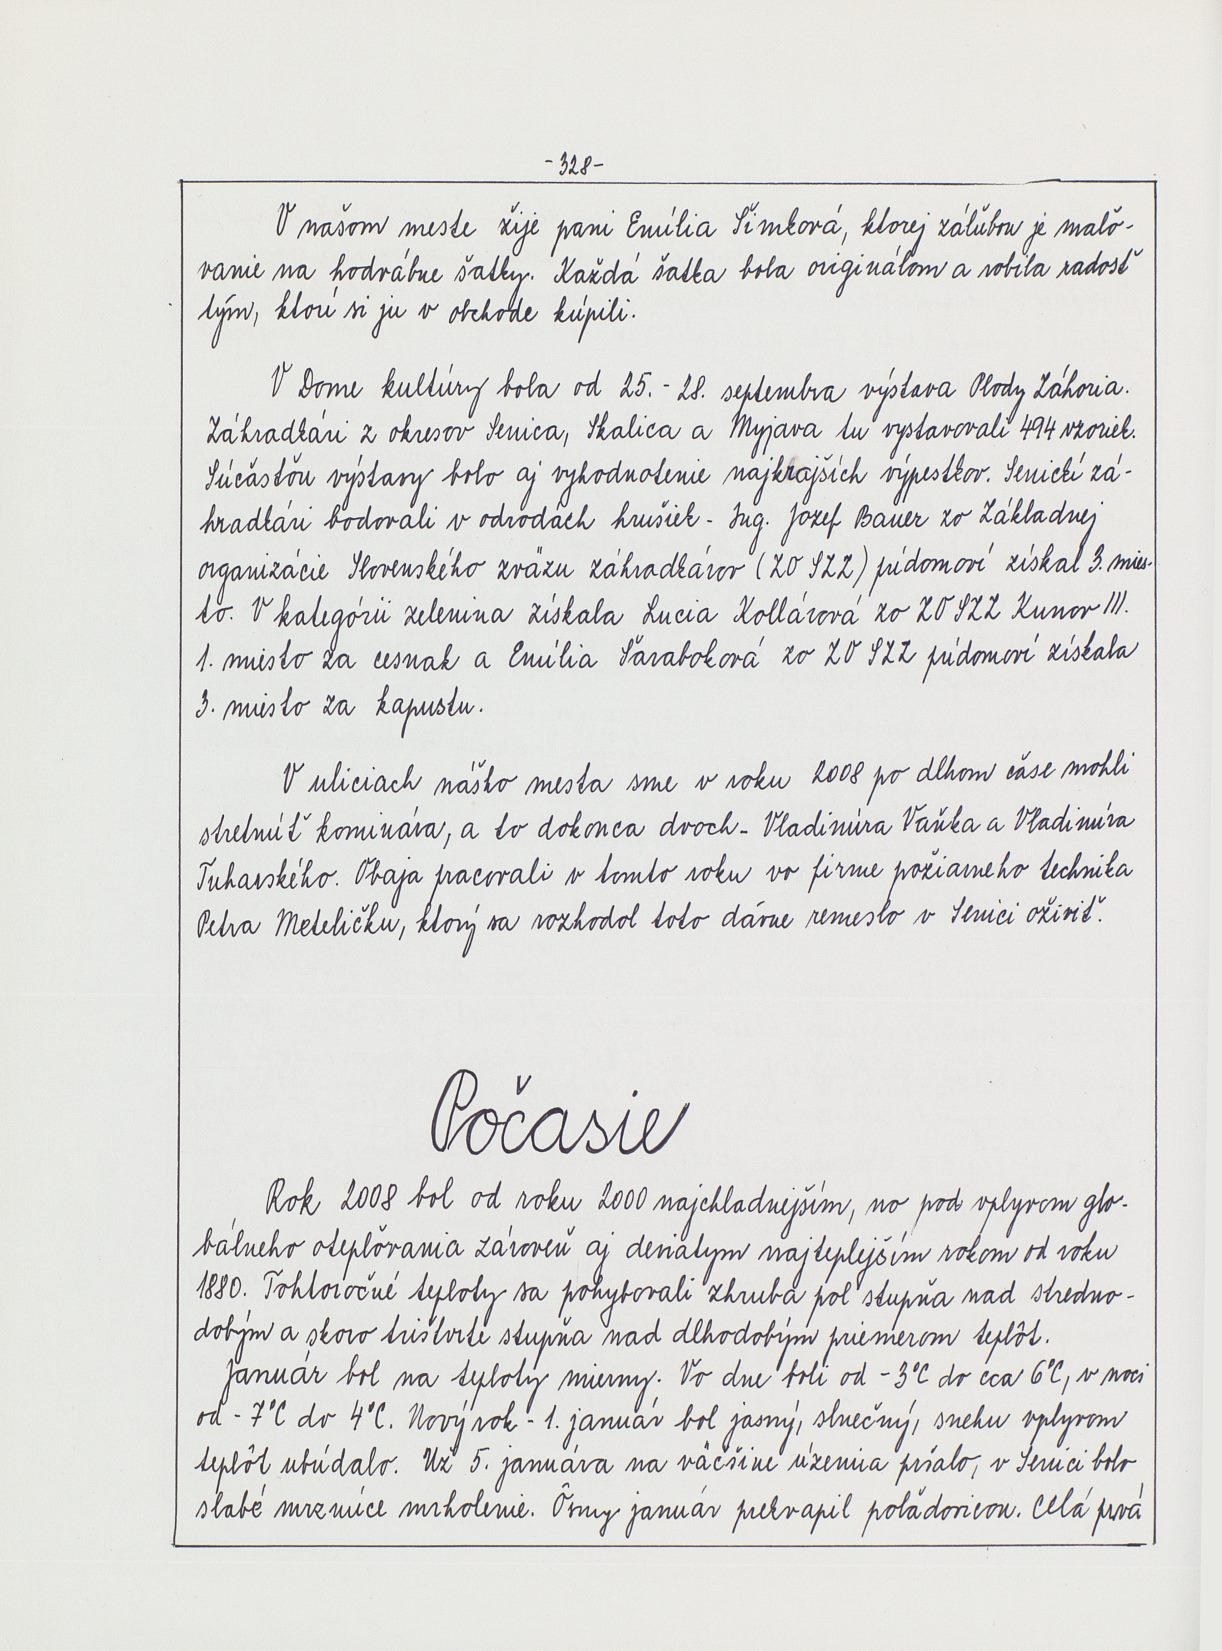 -328-
V našom meste žije pani Emília Šimková, ktorej záľubou je maľo-
vanie na hodvábne šatky. Každá šatka bola originálom a robila radosť
tým, ktorí si ju v obchode kúpili.
V Dome kultúry bola od 25.- 28. septembra výstava Plody Záhoria.
Záhradkári z okresov Senica, Skalica a Myjava tu vystavovali 494 vzoriek.
Súčasťou výstavy bolo aj vyhodnotenie najkrajších výpestkov. Senickí zá-
hradkári bodovali v odrodách hrušiek - Ing. Jozef Bauer zo Základnej
organizácie Slovenského zväzu záhradkárov (ZO SZZ) púdomoví získal 3. mies-
to. V kategórii zelenina získala Lucia Kollárová zo ZO SZZ Kunov III.
1. miesto za cesnak a Emília Šaraboková zo ZO SZZ púdomoví získala
3. miesto za kapustu.
V uliciach nášho mesta sme v roku 2008 po dlhom čase mohli
stretnúť kominára, a to dokonca dvoch - Vladimíra Vaňka a Vladimíra
Tuharského. Obaja pracovali v tomto roku vo firme požiarneho technika
Petra Meteličku, ktorý sa rozhodol toto dávne remeslo v Senici oživiť.
Počasie
Rok 2008 bol od roku 2000 najchladnejším, no pod vplyvom glo-
bálneho otepľovania zároveň aj deviatym najteplejším rokom od roku
1880. Tohtoročné teploty sa pohybovali zhruba pol stupňa nad stredno-
dobým a skoro trištvrte stupňa nad dlhodobým priemerom teplôt.
Január bol na teploty mierny. Vo dne boli od -3°C do cca 6°C, v noci
od -7°C do 4°C. Nový rok - 1. január bol jasný, slnečný, snehu vplyvom
teplôt ubúdalo. Už 5. januára na väčšine územia pršalo, v Senici bolo
slabé mrznúce mrholenie. Ôsmy január prekvapil poľadovicou. Celá prvá